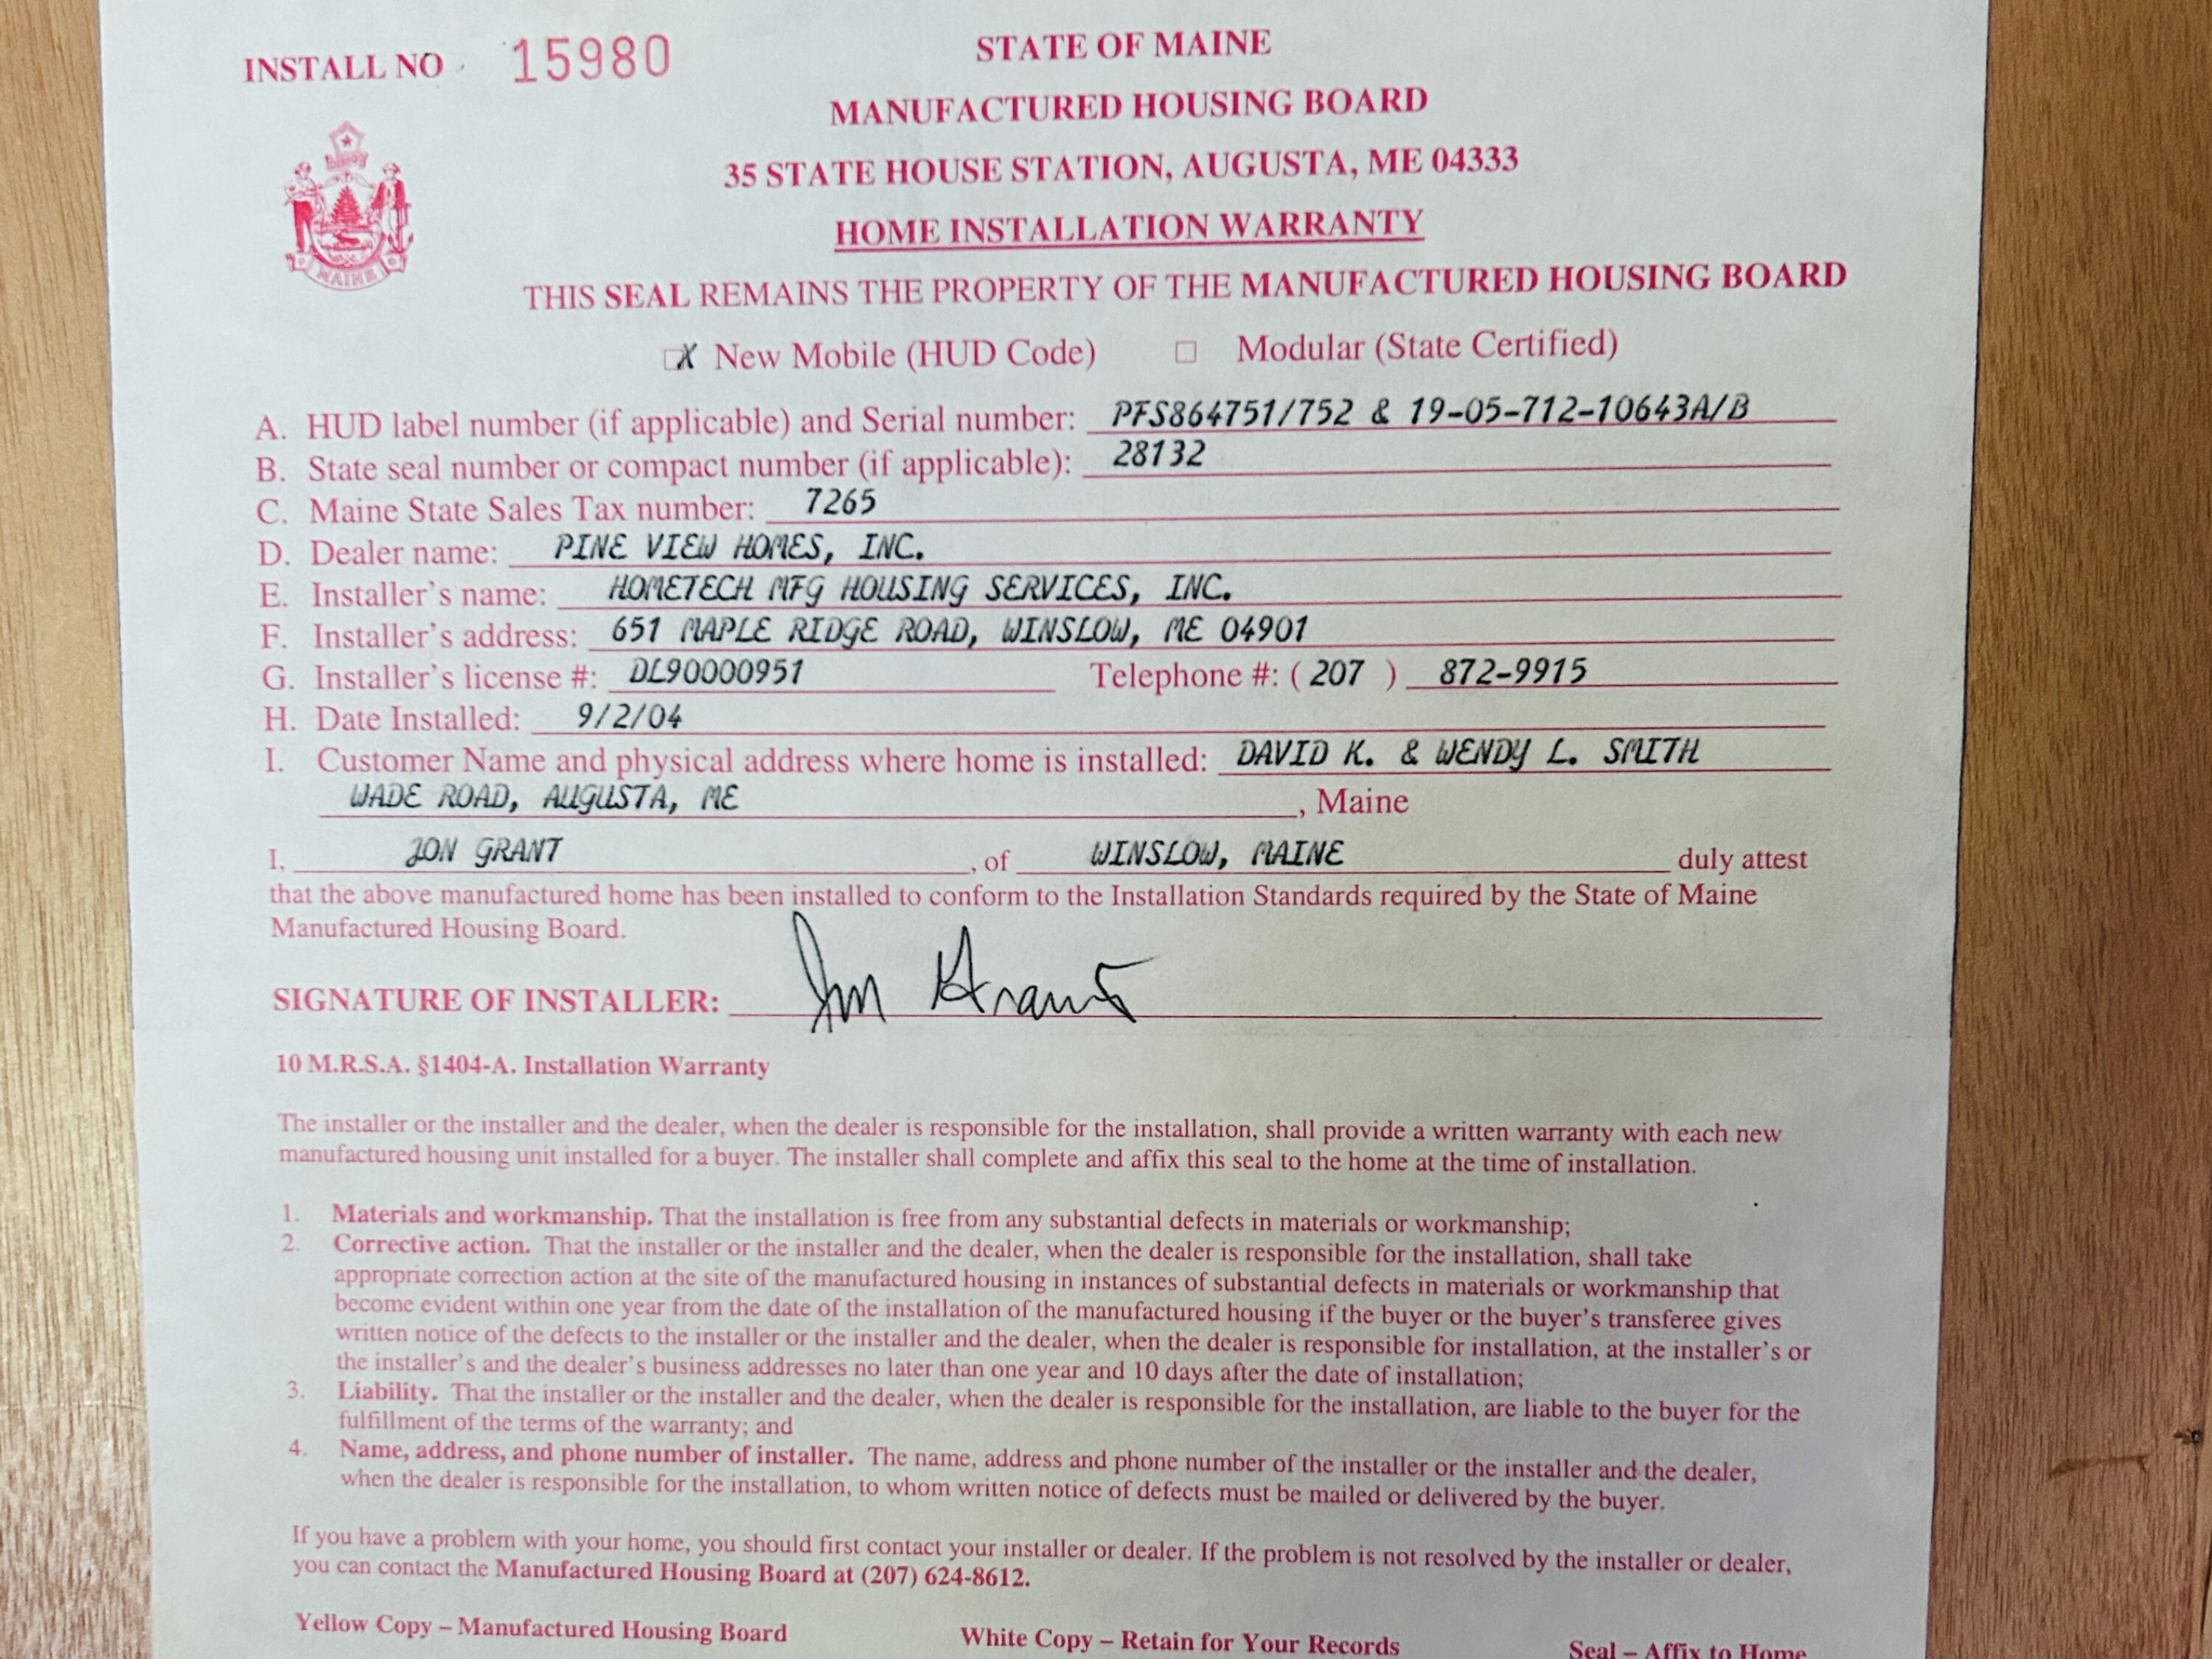 INSTALL NO 15980
STATE OF MAINE
MANUFACTURED HOUSING BOARD
35 STATE HOUSE STATION, AUGUSTA, ME 04333
HOME INSTALLATION WARRANTY
MAINE
THIS SEAL REMAINS THE PROPERTY OF THE MANUFACTURED HOUSING BOARD
☒ New Mobile (HUD Code) ☐ Modular (State Certified)
A. HUD label number (if applicable) and Serial number: PFS864751/752 & 19-05-712-10643A/B
B. State seal number or compact number (if applicable): 28132
C. Maine State Sales Tax number: 7265
D. Dealer name: PINE VIEW HOMES, INC.
E. Installer's name: HOMETECH MFG HOUSING SERVICES, INC.
F. Installer's address: 651 MAPLE RIDGE ROAD, WINSLOW, ME 04901
G. Installer's license #: DL90000951 Telephone #: ( 207 ) 872-9915
H. Date Installed: 9/2/04
I. Customer Name and physical address where home is installed: DAVID K. & WENDY L. SMITH
WADE ROAD, AUGUSTA, ME , Maine
I, JON GRANT , of WINSLOW, MAINE duly attest
that the above manufactured home has been installed to conform to the Installation Standards required by the State of Maine
Manufactured Housing Board.
SIGNATURE OF INSTALLER: Jon Grant
10 M.R.S.A. §1404-A. Installation Warranty
The installer or the installer and the dealer, when the dealer is responsible for the installation, shall provide a written warranty with each new
manufactured housing unit installed for a buyer. The installer shall complete and affix this seal to the home at the time of installation.
1. Materials and workmanship. That the installation is free from any substantial defects in materials or workmanship;
2. Corrective action. That the installer or the installer and the dealer, when the dealer is responsible for the installation, shall take
appropriate correction action at the site of the manufactured housing in instances of substantial defects in materials or workmanship that
become evident within one year from the date of the installation of the manufactured housing if the buyer or the buyer's transferee gives
written notice of the defects to the installer or the installer and the dealer, when the dealer is responsible for installation, at the installer's or
the installer's and the dealer's business addresses no later than one year and 10 days after the date of installation;
3. Liability. That the installer or the installer and the dealer, when the dealer is responsible for the installation, are liable to the buyer for the
fulfillment of the terms of the warranty; and
4. Name, address, and phone number of installer. The name, address and phone number of the installer or the installer and the dealer,
when the dealer is responsible for the installation, to whom written notice of defects must be mailed or delivered by the buyer.
If you have a problem with your home, you should first contact your installer or dealer. If the problem is not resolved by the installer or dealer,
you can contact the Manufactured Housing Board at (207) 624-8612.
Yellow Copy – Manufactured Housing Board White Copy – Retain for Your Records Seal – Affix to Home